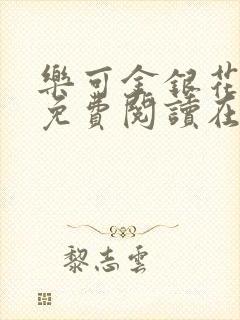 樂可金銀花
免費閱讀在
黎志雲